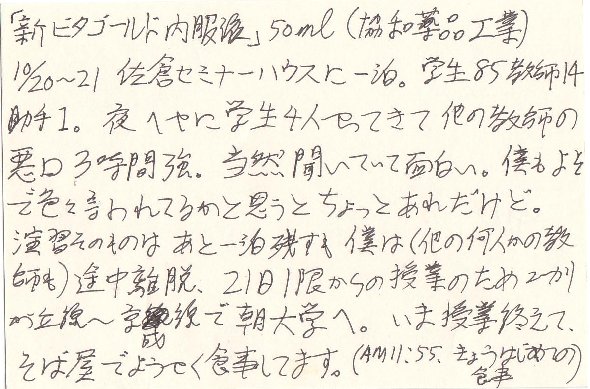 「新ビタゴールド内服液」50ml (協和薬品工業)
10/20〜21 佐倉セミナーハウスに一泊。学生85教師14
助手1。夜へやに学生4人やってきて他の教師の
悪口3時間強。当然聞いていて面白い。僕もよそ
で色々言われてるかと思うとちょっとあれだけど。
演習そのものはあと一泊残すも僕は(他の何人かの教
師も)途中離脱、21日1限からの授業のためユーカリ
が丘線〜京成線で朝大学へ。いま授業終えて、
そば屋でようやく食事してます。(AM11:55、きょうはじめての
食事)